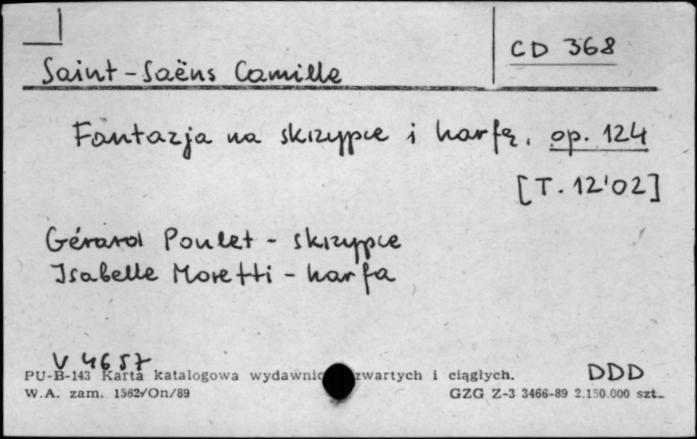 CD 368
Saint-Saëns Camille
Fantazja na skrzypce i harfę, op. 124
[T. 12'02]
Gérard Poulet - skrzypce
Isabelle Moretti - harfa
V 4657
PU-B-143 Karta katalogowa wydawnic zwartych i ciągłych.
DDD
W.A. zam. 1562/On/89
GZG Z-3 3466-89 2.150.000 szt.